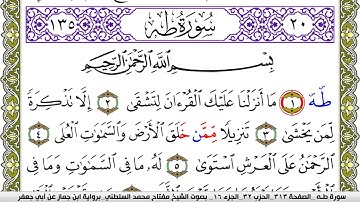 ١٣٥ سُورَةُ طه ٢٠
بِسْمِ ٱللَّهِ ٱلرَّحْمَٰنِ ٱلرَّحِيمِ
طه ١ مَا أَنزَلْنَا عَلَيْكَ ٱلْقُرْءَانَ لِتَشْقَىٰ ٢ إِلَّا تَذْكِرَةً
لِّمَن يَخْشَىٰ ٣ تَنزِيلًا مِّمَّنْ خَلَقَ ٱلْأَرْضَ وَٱلسَّمَٰوَٰتِ ٱلْعُلَى ٤
ٱلرَّحْمَٰنُ عَلَى ٱلْعَرْشِ ٱسْتَوَىٰ ٥ لَهُۥ مَا فِى ٱلسَّمَٰوَٰتِ وَمَا
سورة طـه _ الصفحة ٣١٣ _ الحزب ٣٢ _ الجزء ١٦ _ بصوت الشيخ مفتاح محمد السلطني _ برواية ابن جماز عن أبي جعفر